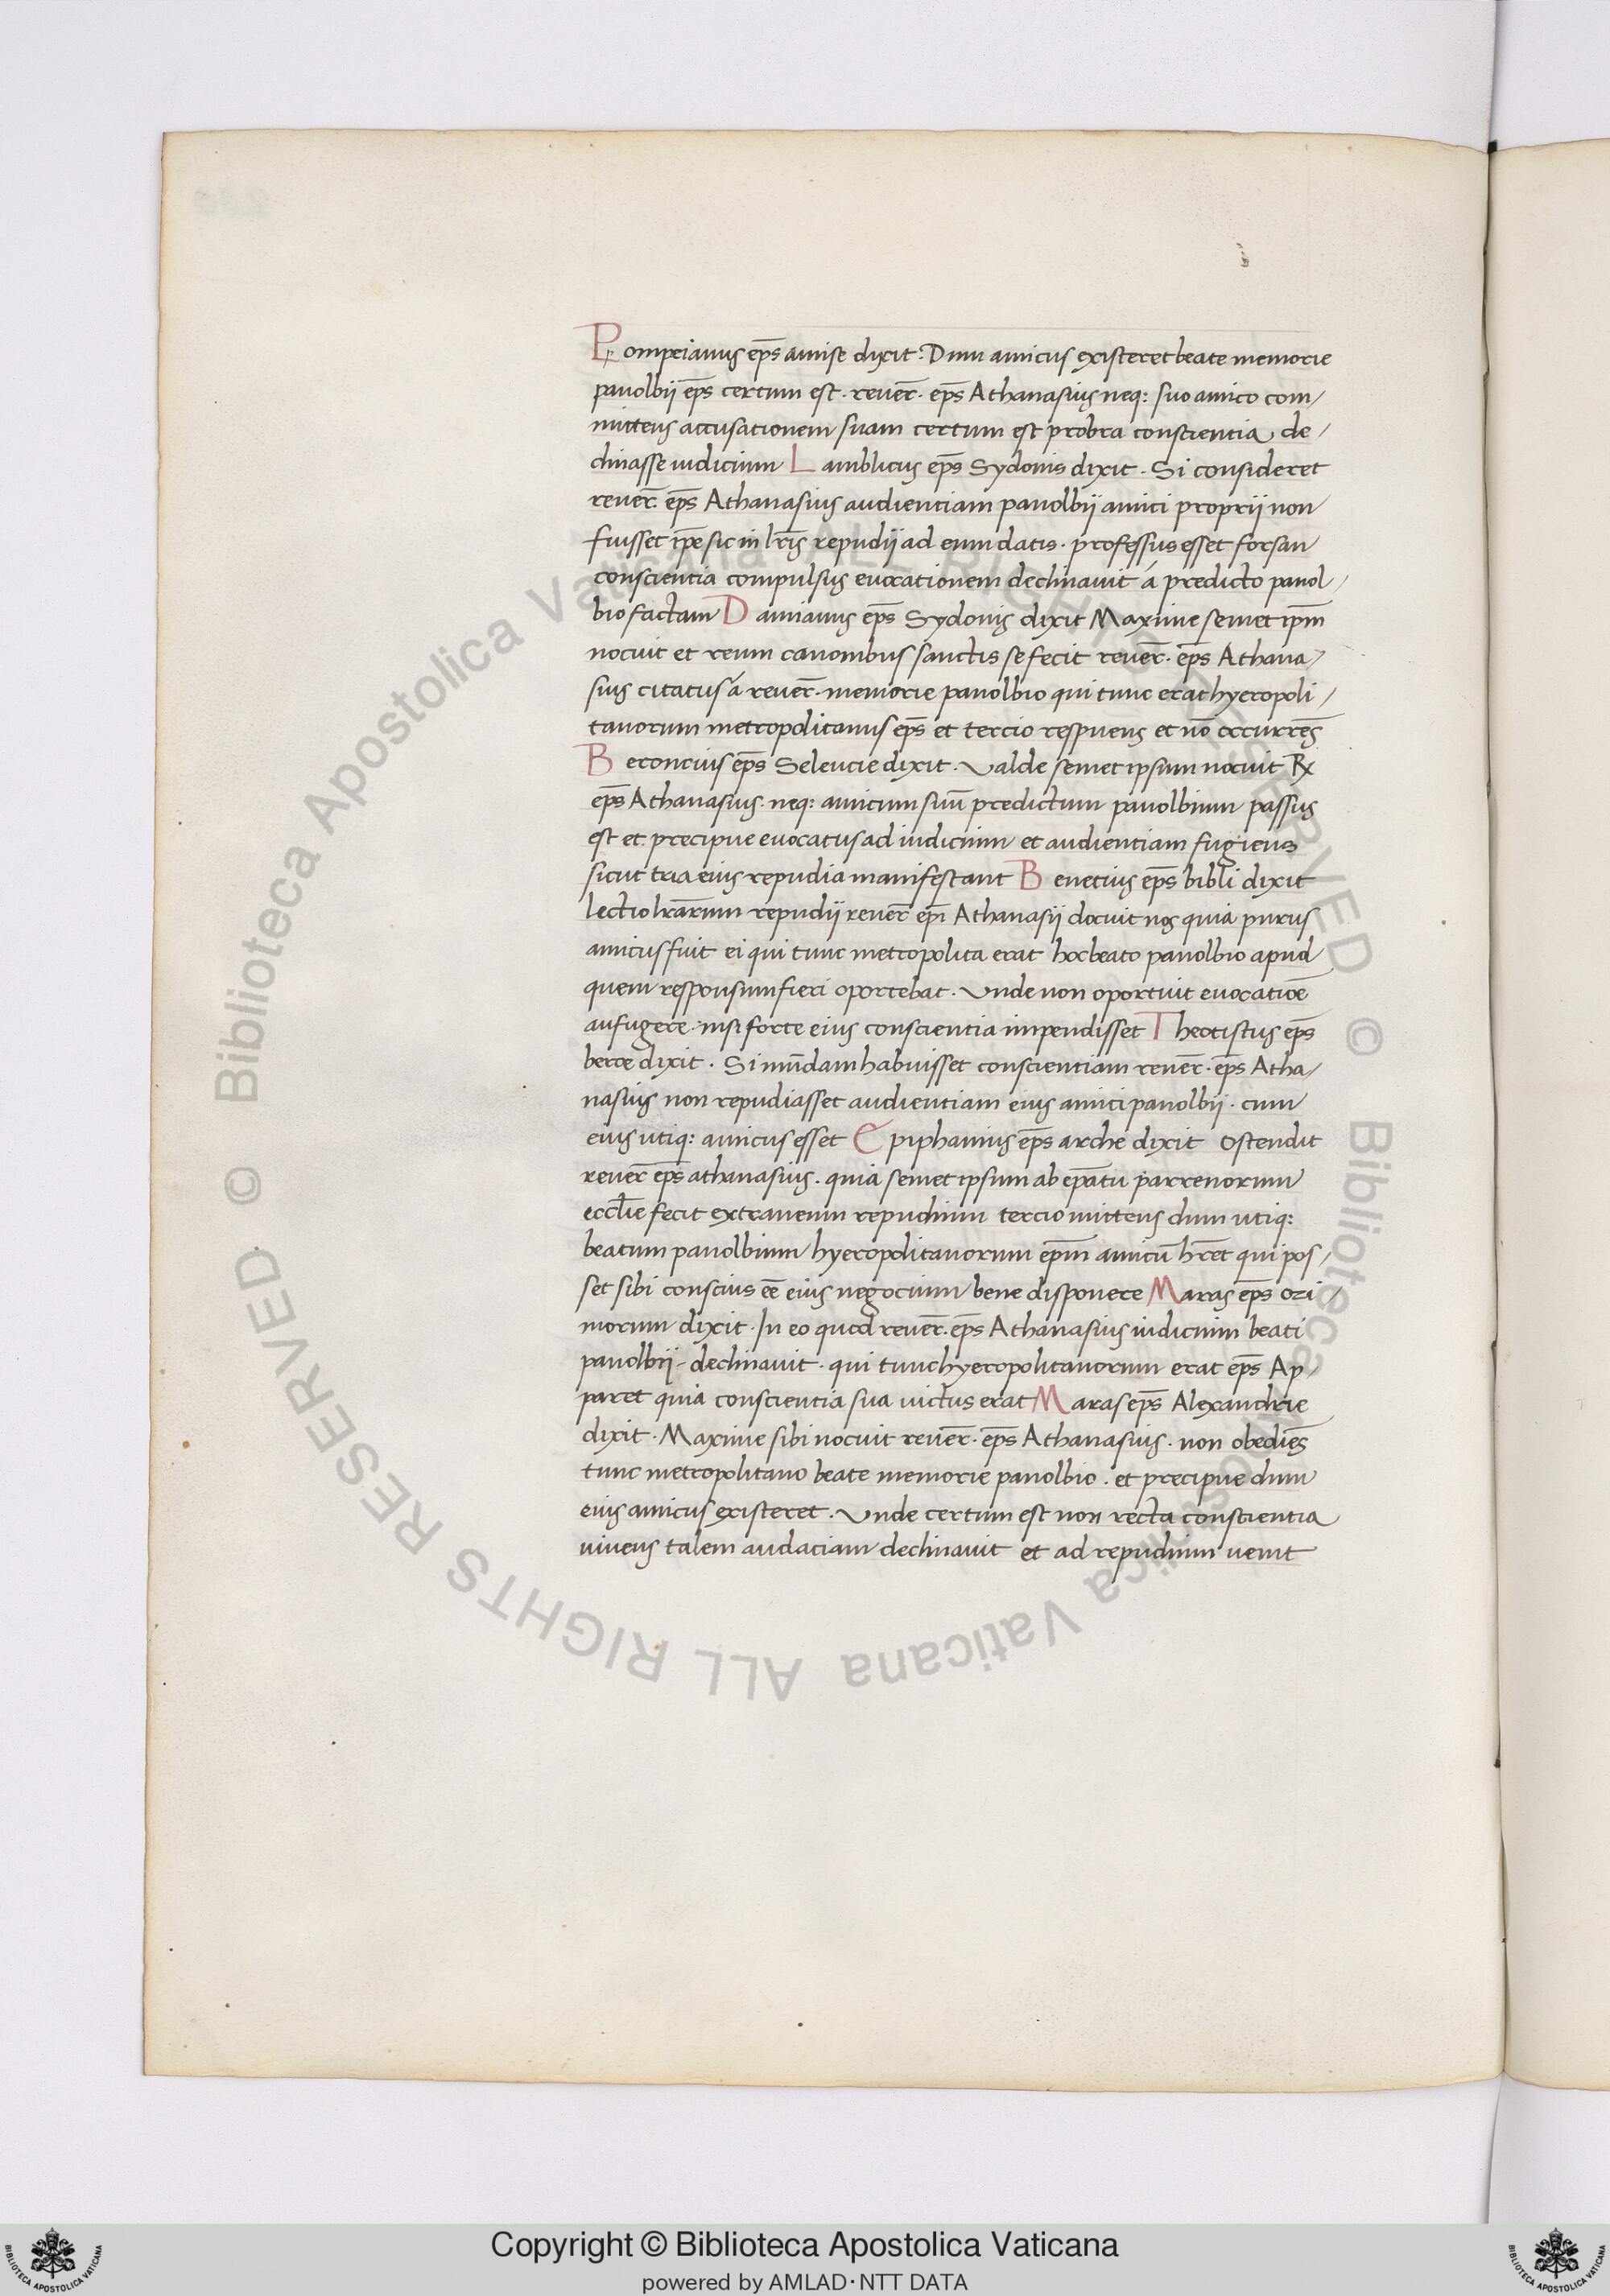 Pompeianus ep̄s amise dixit: Dum amicus existeret beate memorie
panolbii ep̄s certum est · reuer̄ · ep̄s Athanasius neq: suo amico com/
mittens accusationem suam certum est probra conscientia de/
clinasse iudicium Lamblicus ep̄s Sydonis dixit · Si consideret
reuer̄ · ep̄s Athanasius audientiam panolbii amici proprii non
fuisset ip̄e sic in lr̄is repudii ad eum datis · professus esset forsan
conscientia compulsus euocationem declinauit á predicto panol/
bio factam Damianus ep̄s Sydonis dixit Maxime semet ip̄m
nocuit et reum canonibus sanctis se fecit reuer̄ · ep̄s Athana/
sius citatus á reuer̄ · memorie panolbio qui tunc erat hyeropoli/
tanorum metropolitanus ep̄s et tercio respuens et nō occurrēs
Beroncius ep̄s Seleucie dixit · Valde semet ipsum nocuit R
ep̄s Athanasius · neq: amicum suū predictum panolbium passus
est et precipue euocatus ad iudicium et audientiam fugiens
sicut tria eius repudia manifestant Benetius ep̄s bibli dixit
lectio lr̄arum repudii reuer̄ ep̄i Athanasii docuit nos quia purus
amicus fuit ei qui tunc metropolita erat hoc beato panolbio apud
quem responsum fieri oportebat · Vnde non oportuit euocatiōe
aufugere · nisi forte eius conscientia impendisset Theotistus ep̄s
beroe dixit · Si mūdam habuisset conscientiam reuer̄ · ep̄s Atha/
nasius non repudiasset audientiam eius amici panolbii · cum
eius utiq: amicus esset Epiphanius ep̄s arche dixit Ostendit
reuer̄ ep̄s athanasius · quia semet ipsum ab ep̄atu parrenorum
eccl̄ie fecit extraneum repudium tercio mittens dum utiq:
beatum panolbium hyeropolitanorum ep̄m amicū hr̄et qui pos/
set sibi conscius eē eius negocium bene disponere Maras ep̄s ori/
morum dixit · In eo quod reuer̄ · ep̄s Athanasius iudicium beati
panolbii - declinauit · qui tunc hyeropolitanorum erat ep̄s Ap/
paret quia conscientia sua uictus erat Maras ep̄s Alexandrie
dixit · Maxime sibi nocuit reuer̄ · ep̄s Athanasius · non obediēs
tunc metropolitano beate memorie panolbio · et precipue dum
eius amicus existeret · Vnde certum est non recta conscientia
uiuens talem audaciam declinauit et ad repudium uenit
© Biblioteca Apostolica Vaticana ALL RIGHTS RESERVED © Biblioteca Apostolica Vaticana ALL RIGHTS RESERVED
Copyright © Biblioteca Apostolica Vaticana
powered by AMLAD·NTT DATA
BIBLIOTECA APOSTOLICA VATICANA
BIBLIOTECA APOSTOLICA VATICANA